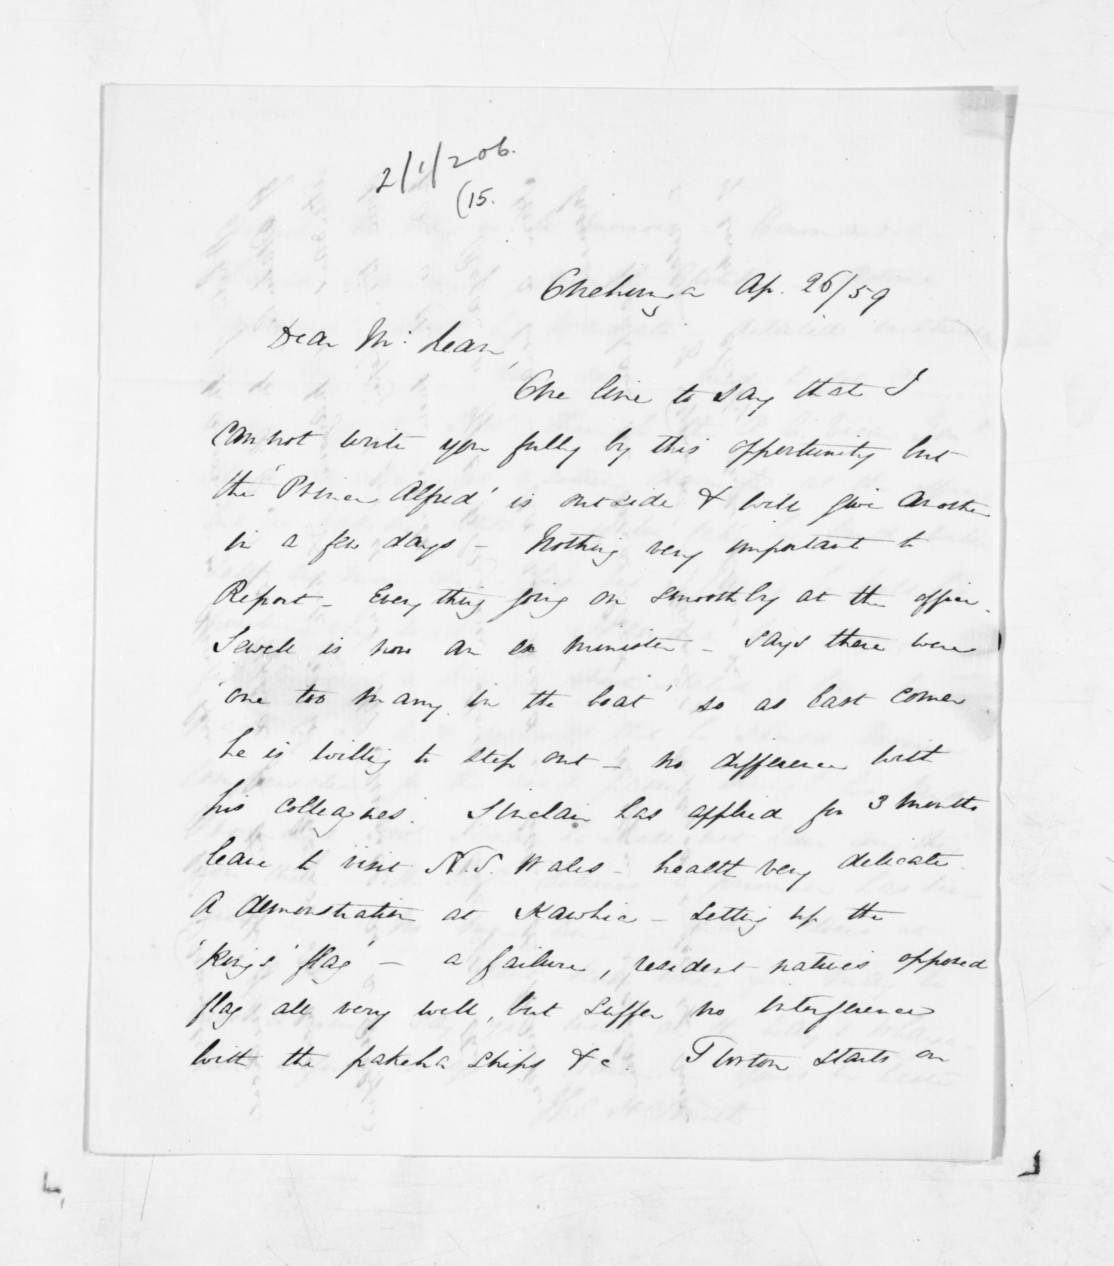 2/1/206.
(15.
Onehunga Ap. 26/59
Dear McLean,
One line to say that I
cannot write you fully by this opportunity but
the 'Prince Alfred' is outside & will give another
in a few days - Nothing very important to
Report - Every thing going on smoothly at the office.
Sewell is now an ex minister - says there were
'one too many in the boat' so as last comer
he is willing to step out - no difference with
his colleagues. Sinclair has applied for 3 months
leave to visit N.S. Wales - health very delicate.
A demonstration at Kawhia - setting up the
'King's flag' - a failure, resident natives opposed
flag all very well, but suffer no interference
with the pakeha ships &c. Turton starts on